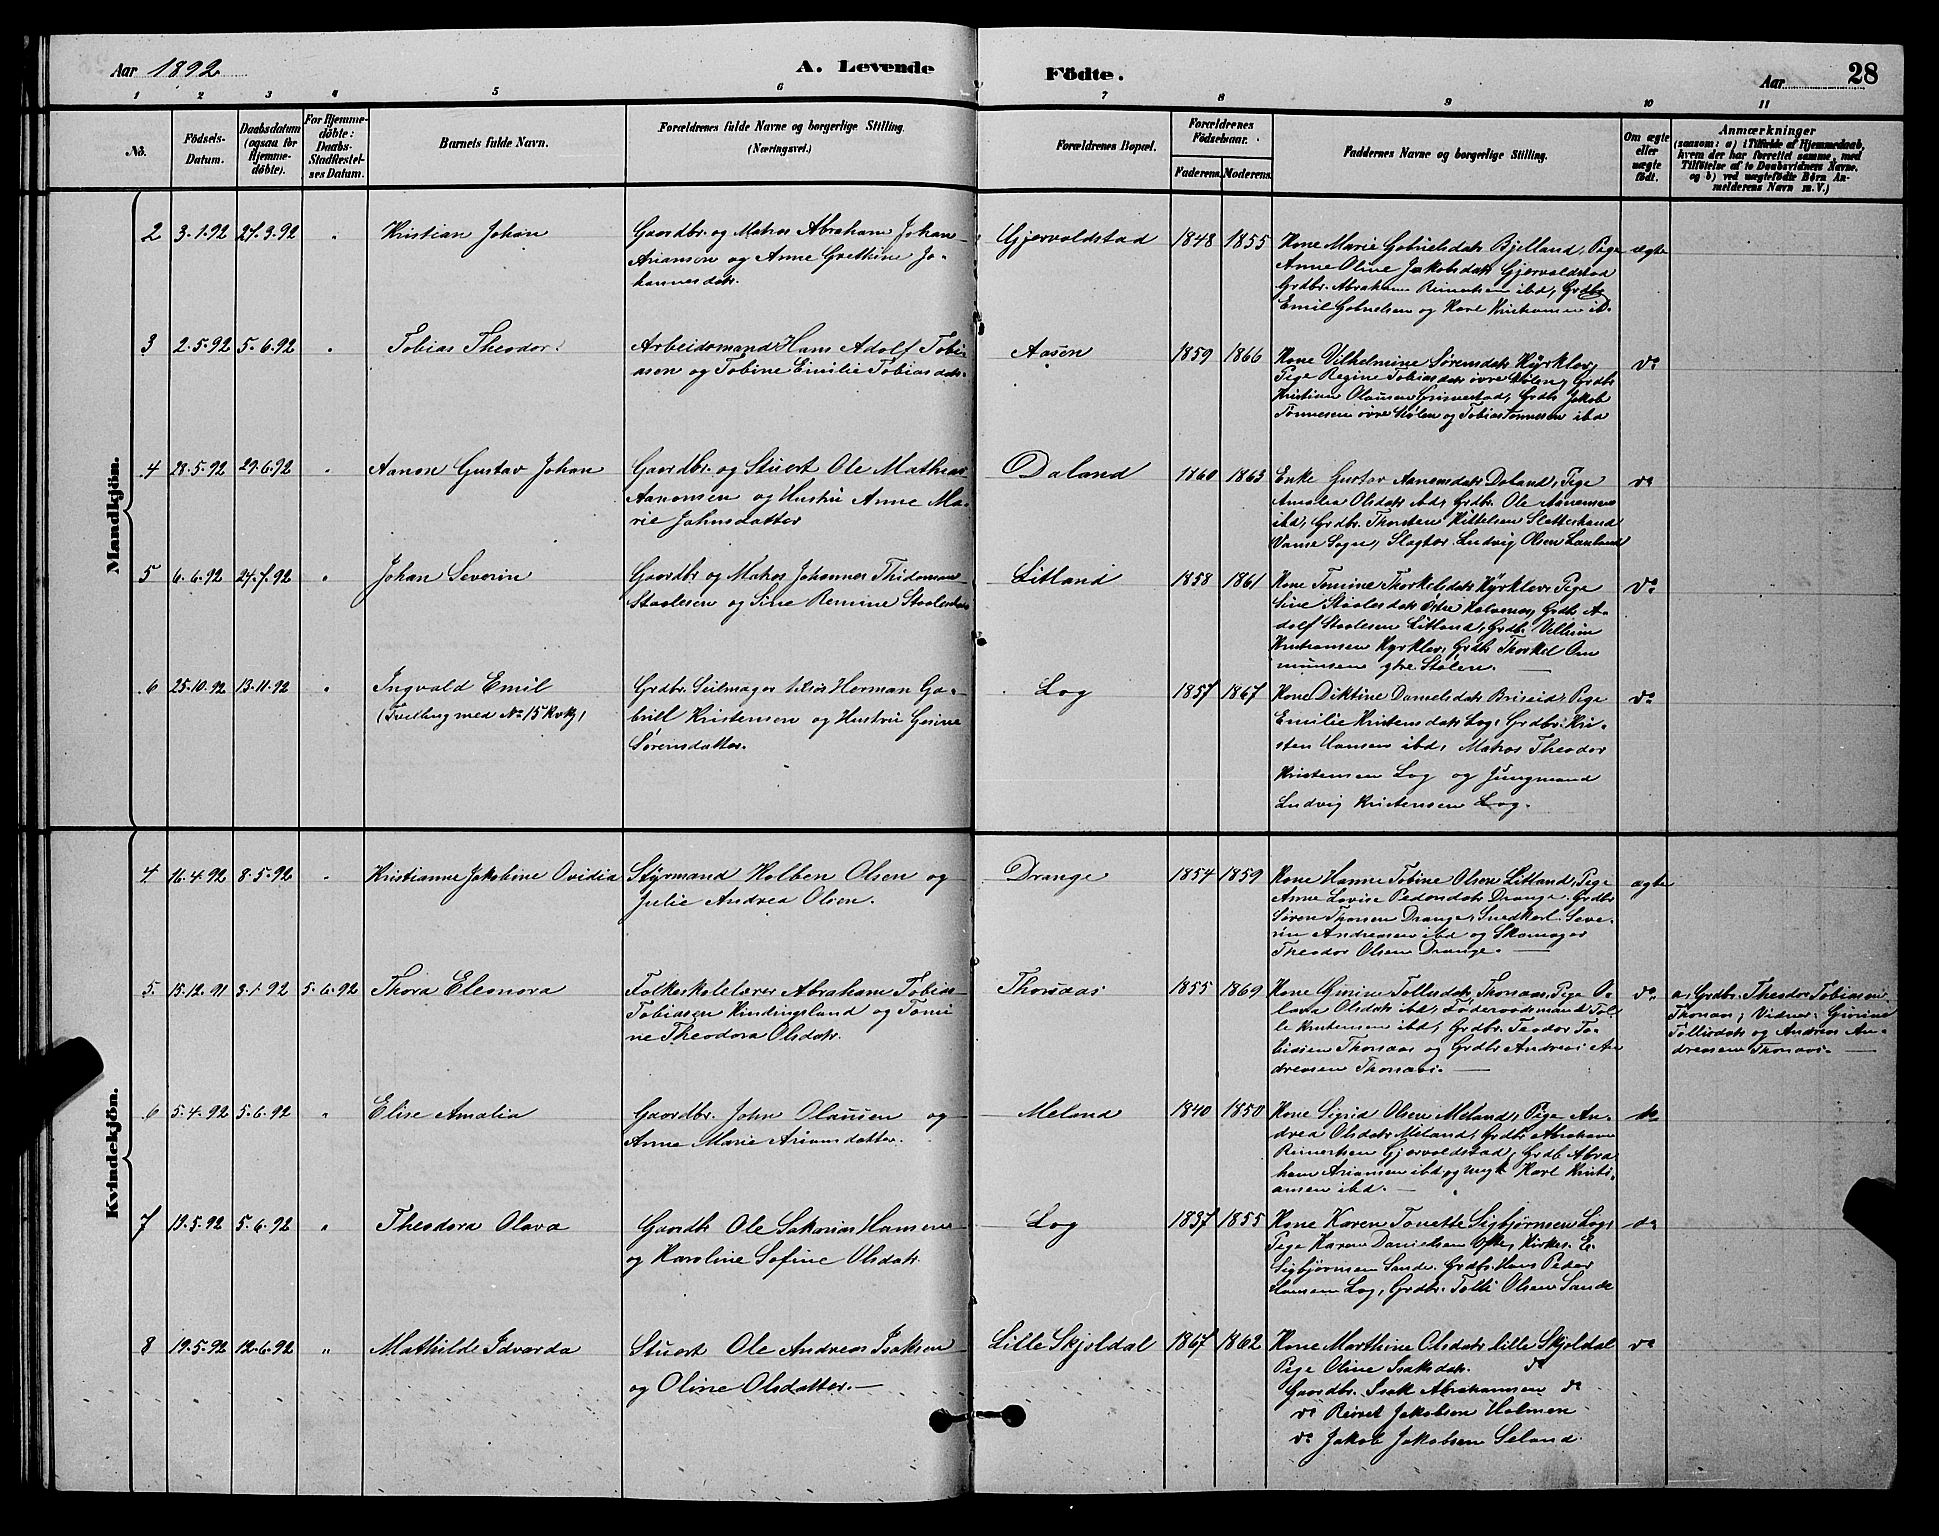 Aar 1892
A. Levende Födte.
Aar
28
1 2 3 4 5 6 7 8 9 10 11
No.
Födsels-Datum.
Daabsdatum (ogsaa for Hjemmedöbte).
For Hjemmedöbte: Daabs-Stadfæstelses Datum.
Barnets fulde Navn.
Forældrenes fulde Navne og borgerlige Stilling. (Næringsvei.)
Forældrenes Bopæl.
Forældrenes Födselsaar.
Faderens. Moderens.
Faddernes Navne og borgerlige Stilling.
Om ægte eller uægte födt.
Anmærkninger
(saasom: a) i Tilfælde af Hjemmedaab, hvem der har forrettet samme, med Tilföielse af to Daabsvidners Navne, og b) ved uægtefödte Börn Anmelderens Navn m.V.)
Mandkjön.
2 3.1.92 27.3.92 " Kristian Johan
Gaardbr. og Matros Abraham Johan
Arianson og Anne Grethine Jo-
hannesdatr.
Gjervoldstad 1848 1855
Kone Marie Gabrielsdatr Bjelland, Pige
Anne Oline Jakobsdatr Gjervoldstad
Grdbr. Abraham Reinertsen ibd, Grdbr
Emil Gabrielsen og Karl Kristiansen ib.
ægte
3 2.5.92 5.6.92 " Tobias Theodor
Arbeidsmand Hans Adolf Tobi-
asen og Tobine Emilie Tobiasdatr.
Aasen 1859 1866
Kone Vilhelmine Sørensdatr Kyrklev,
Pige Regine Tobiasdatr øvre Stølen, Grdbr
Kristian Olausen Grimestad, Grdb. Jakob
Tønnesen øvre Stølen og Tobias Tønnesen ibd
do
4 28.5.92 29.6.92 " Aanon Gustav Johan
Gaardbr. og Stuert Ole Mathias
Aanonsen og Hustru Anne Ma-
rie Johnsdatter
Daland 1860 1863
Enke Gustav Aanensdatr Daland, Pige
Amalia Olsdatr ibd, Grdbr. Ole Aanensen
ibd, Grdbr. Thorsten Kittelsen
Vanse Sogn, Slagter Ludvig Olsen
do
5 6.6.92 27.7.92 " Johan Severin
Gaardbr og Matros Johannes Thideman
Staalesen og Sine Remine Staalesdatr
Litland 1858 1861
Kone Tomine Thorkelsdatr Kyrklev, Pige
Sine Staalesdatr Østre Kalvenes, Grdb. A-
dolf Staalesen Litland, Grdb. Vilhelm
Kristiansen Kyrklev, Grdb. Thorkel Om
munsen ytre Stølen.
do
6 25.10.92 13.11.92 " Ingvald Emil
(Tvilling med No 15 Kvkj)
Grdbr. Seilmager Elias Herman Ga-
briel Kristensen og Hustru Gesine
Sørensdatter.
Log 1857 1867
Kone Diktine Danielsdatr Briseid, Pige
Emilie Kristensdatr Log, Grdbr. Kri-
sten Hansen ibd, Matros Theodor
Kristensen Log og Jungmand
Ludvig Kristensen Log.
do
Kvindekjön.
4 16.4.92 8.5.92 " Kristianne Jakobine Ovidia
Styrmand Holben Olsen og
Julie Andrea Olsen.
Drange 1854 1859
Kone Hanne Tobine Olsen Litland, Pige
Anne Lovise Pedersdatr Drange, Grdbr
Søren Thorsen Drange, Snedkerl. Seve-
rin Andreasen ibd og Skomager
Theodor Olsen Drange.
ægte
5 15.12.91 3.1.92 5.6.92 Thora Eleonora
Folkeskolelærer Abraham Tobias
Tobiasen Kindingsland og Tomi
ne Theodora Olsdatr.
Thorsaas 1855 1869
Kone Gurine Tollisdatr, Thorsaas, Pige O-
lava Olsdatr ibd, Føderaadsmand Tol-
le Kristensen ibd, Grdbr. Teodor To-
biasen Thorsaas og Grdbr Andreas An
dreasen Thorsaas.
do
a, Grdbr. Theodor Tobiasen
Thorsaas; Vidner: Gurine
Tollisdatr og Andreas An-
dreasen Thorsaas.
6 5.4.92 5.6.92 " Elise Amalia
Gaardbr. John Olausen og
Anne Marie Ariansdatter.
Meland 1840 1850
Kone Sigrid Olsen Meland, Pige An-
drea Olsdatr Meland, Grdbr Abraham
Reinertsen Gjervoldstad, Grdb. Abra
ham Ariansen ibd og Ungk Karl Kristi-
ansen ibd.
do
7 19.5.92 5.6.92 " Theodora Olava
Gaardb. Ole Sakarias Hansen
og Karoline Sofine Olsdatr.
Log 1837 1855
Kone Karen Tonette Sigbjørnsen Log,
Pige Karen Danielsen Ofte, Kirkes. E.
Sigbjørnsen Sande. Grdbr. Hans Peder
Hansen Log, Grdbr. Tolli Olsen Sande
do
8 19.5.92 12.6.92 " Mathilde Edvarda
Stuert Ole Andreas Isaksen
og Oline Olsdatter.
Lille Skjoldal 1867 1862
Kone Marthine Olsdatr lille Skjoldal
Pige Oline Isaksdatr. do
Gaardbr. Isak Abrahamsen do
do Reinert Jakobsen Holmen
do Jakob Jakobsen Seland.
do